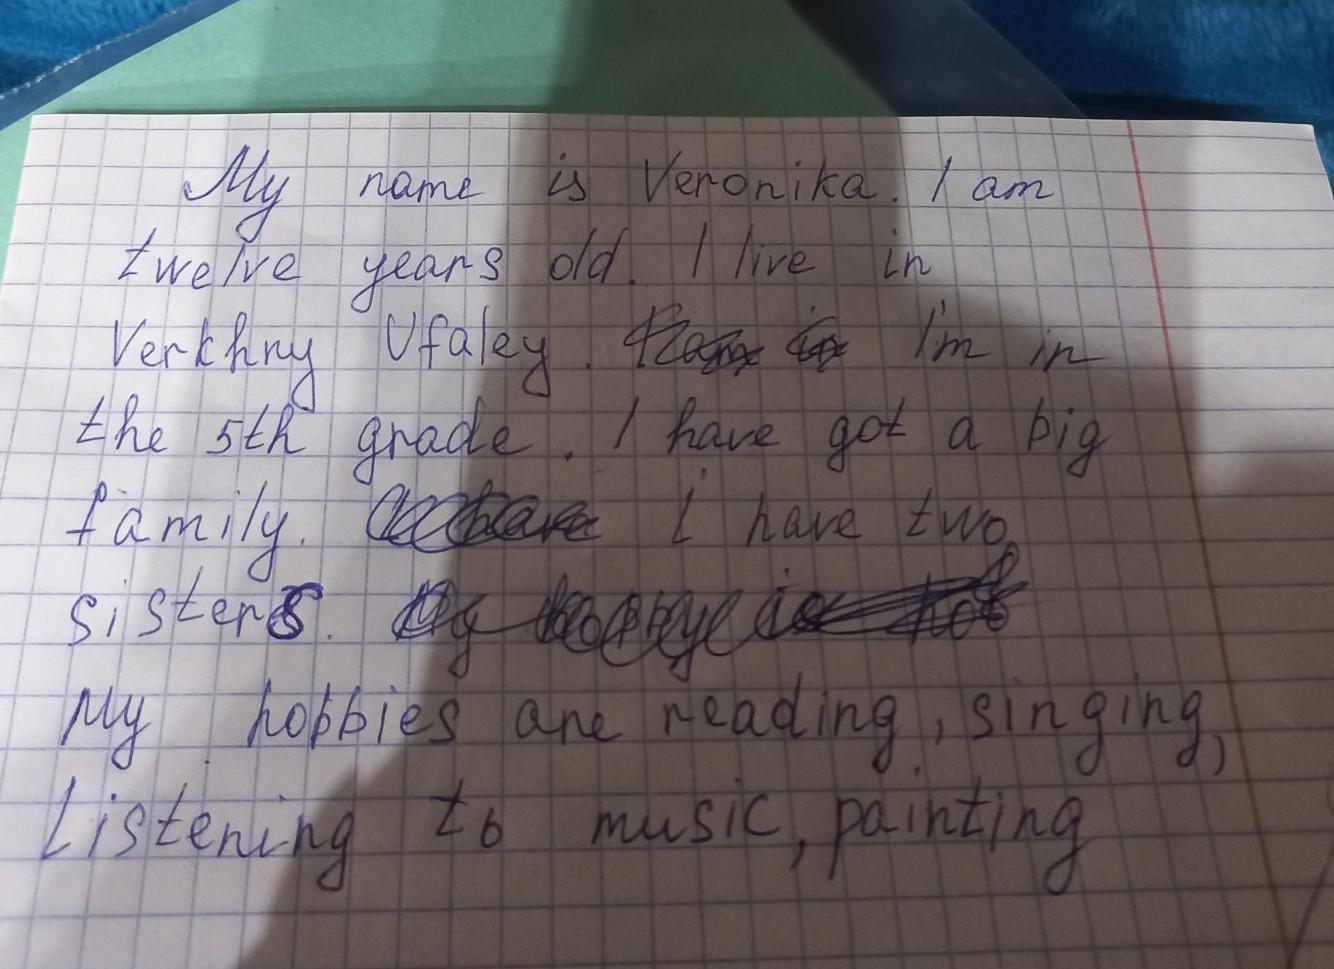 My name is Veronika. I am
twelve years old. I live in
Verkhny Ufaley. I'm in
the 5th grade. I have got a big
family. I have two
sisters.
My hobbies are reading, singing,
Listening to music, painting